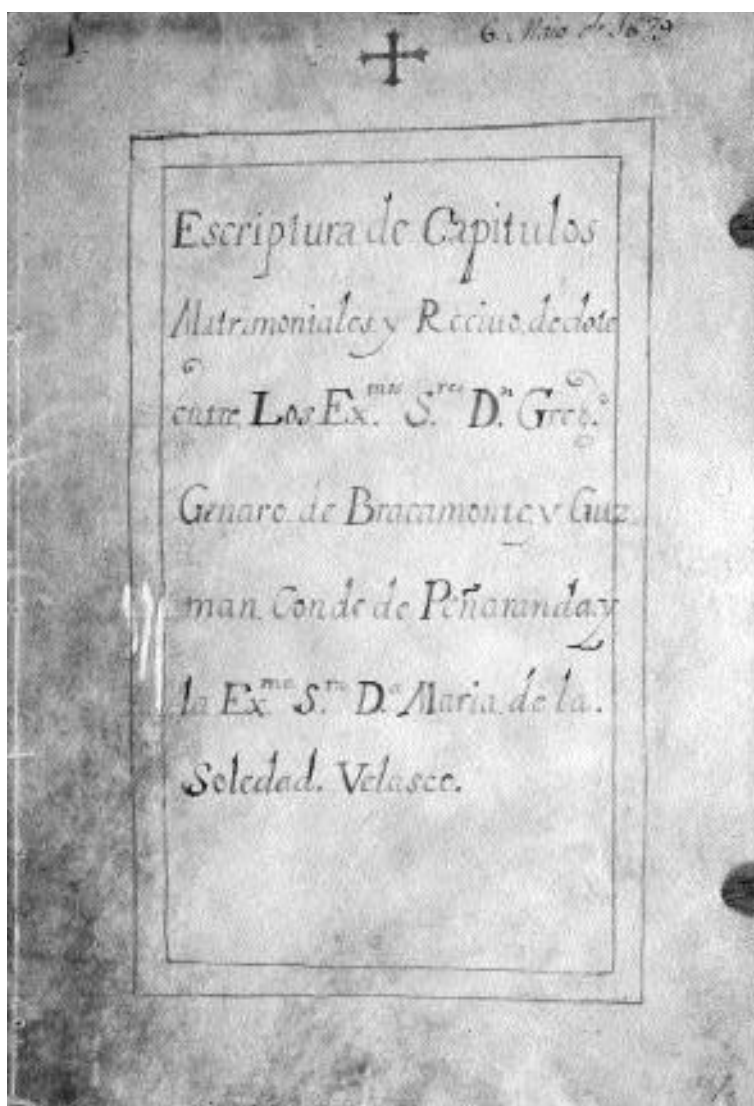 6. Maio de 1679
Escriptura de Capitulos
Matrimoniales y Reciuo de dote
entre Los Ex.mos S.res D.n Greg.o
Genaro de Bracamonte y Guz
man Conde de Peñaranda y
la Ex.ma S.ra D.a Maria de la.
Soledad. Velasco.